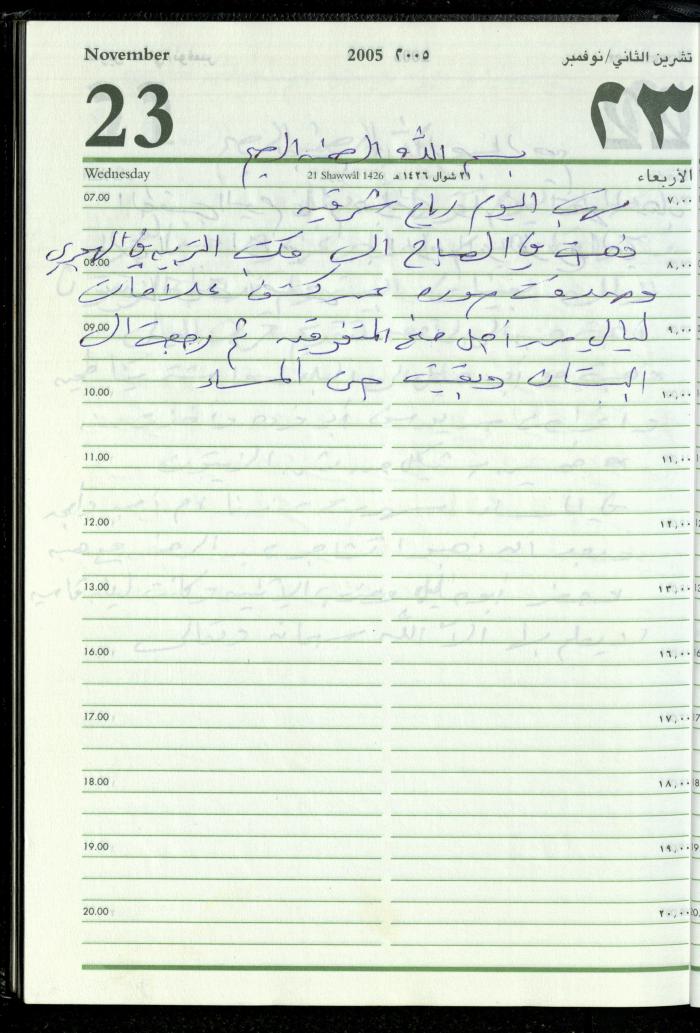 November 2005 ٢٠٠٥ تشرين الثاني/نوفمبر
23 ٢٣
بسم الله الرحمن الرحيم
Wednesday 21 Shawwâl 1426 ٢١ شوال ١٤٢٦ هـ الأربعاء
07.00 تهب اليوم رياح شرقيه ٧,٠٠
ذهبت في الصباح الى مكتب التربيه في الهجري
08.00 ٨,٠٠
وصدقت صوره عن كشف علامات
09.00 ليالي من أجل منح المتفوقيه ثم رجعت الى ٩,٠٠
البستان وبقيت حتى المساء
10.00 ١٠,٠٠
11.00 ١١,٠٠
12.00 ١٢,٠٠
13.00 ١٣,٠٠
16.00 ١٦,٠٠
17.00 ١٧,٠٠
18.00 ١٨,٠٠
19.00 ١٩,٠٠
20.00 ٢٠,٠٠